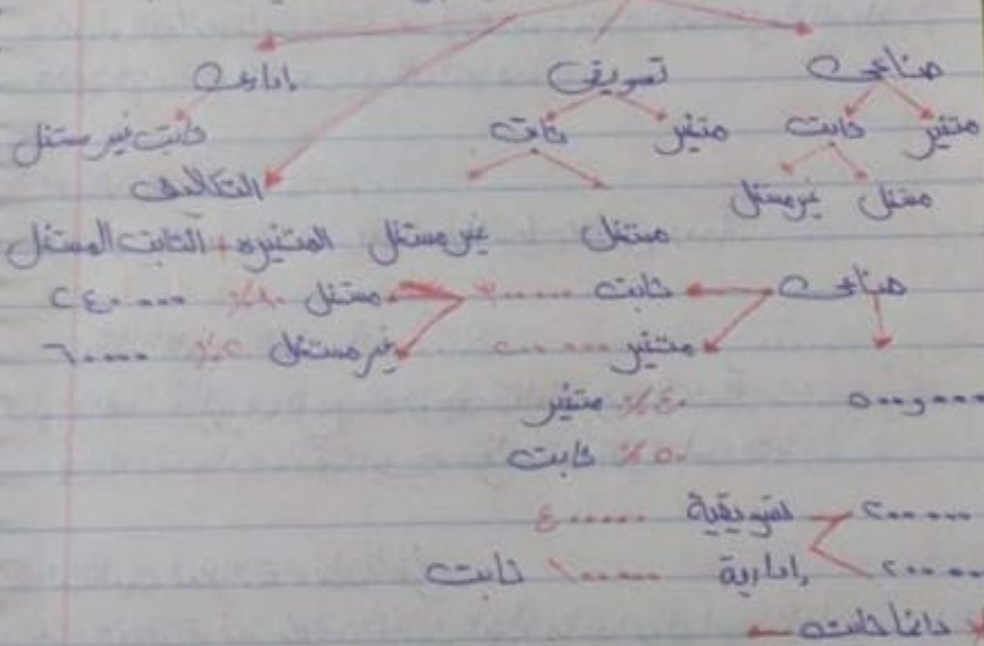 صناعى تسويقى إدارى
متغير ثابت متغير ثابت ثابت غير مستغل
التكاليف
مستغل غير مستغل مستغل غير مستغل المتغيره + الثابت المستغل
صناعى ثابت ٣٠٠٠٠٠ مستغل ٨٠٪ ٢٤٠٠٠٠
متغير ٢٠٠٠٠٠ غير مستغل ٢٠٪ ٦٠٠٠٠
٥٠٠و٠٠٠ ٤٠٪ متغير
٥٠٪ ثابت
٢٠٠٠٠٠ تسويقية
٢٠٠٠٠٠ إدارية ١٠٠٠٠٠ ثابت
* دائما ثابته